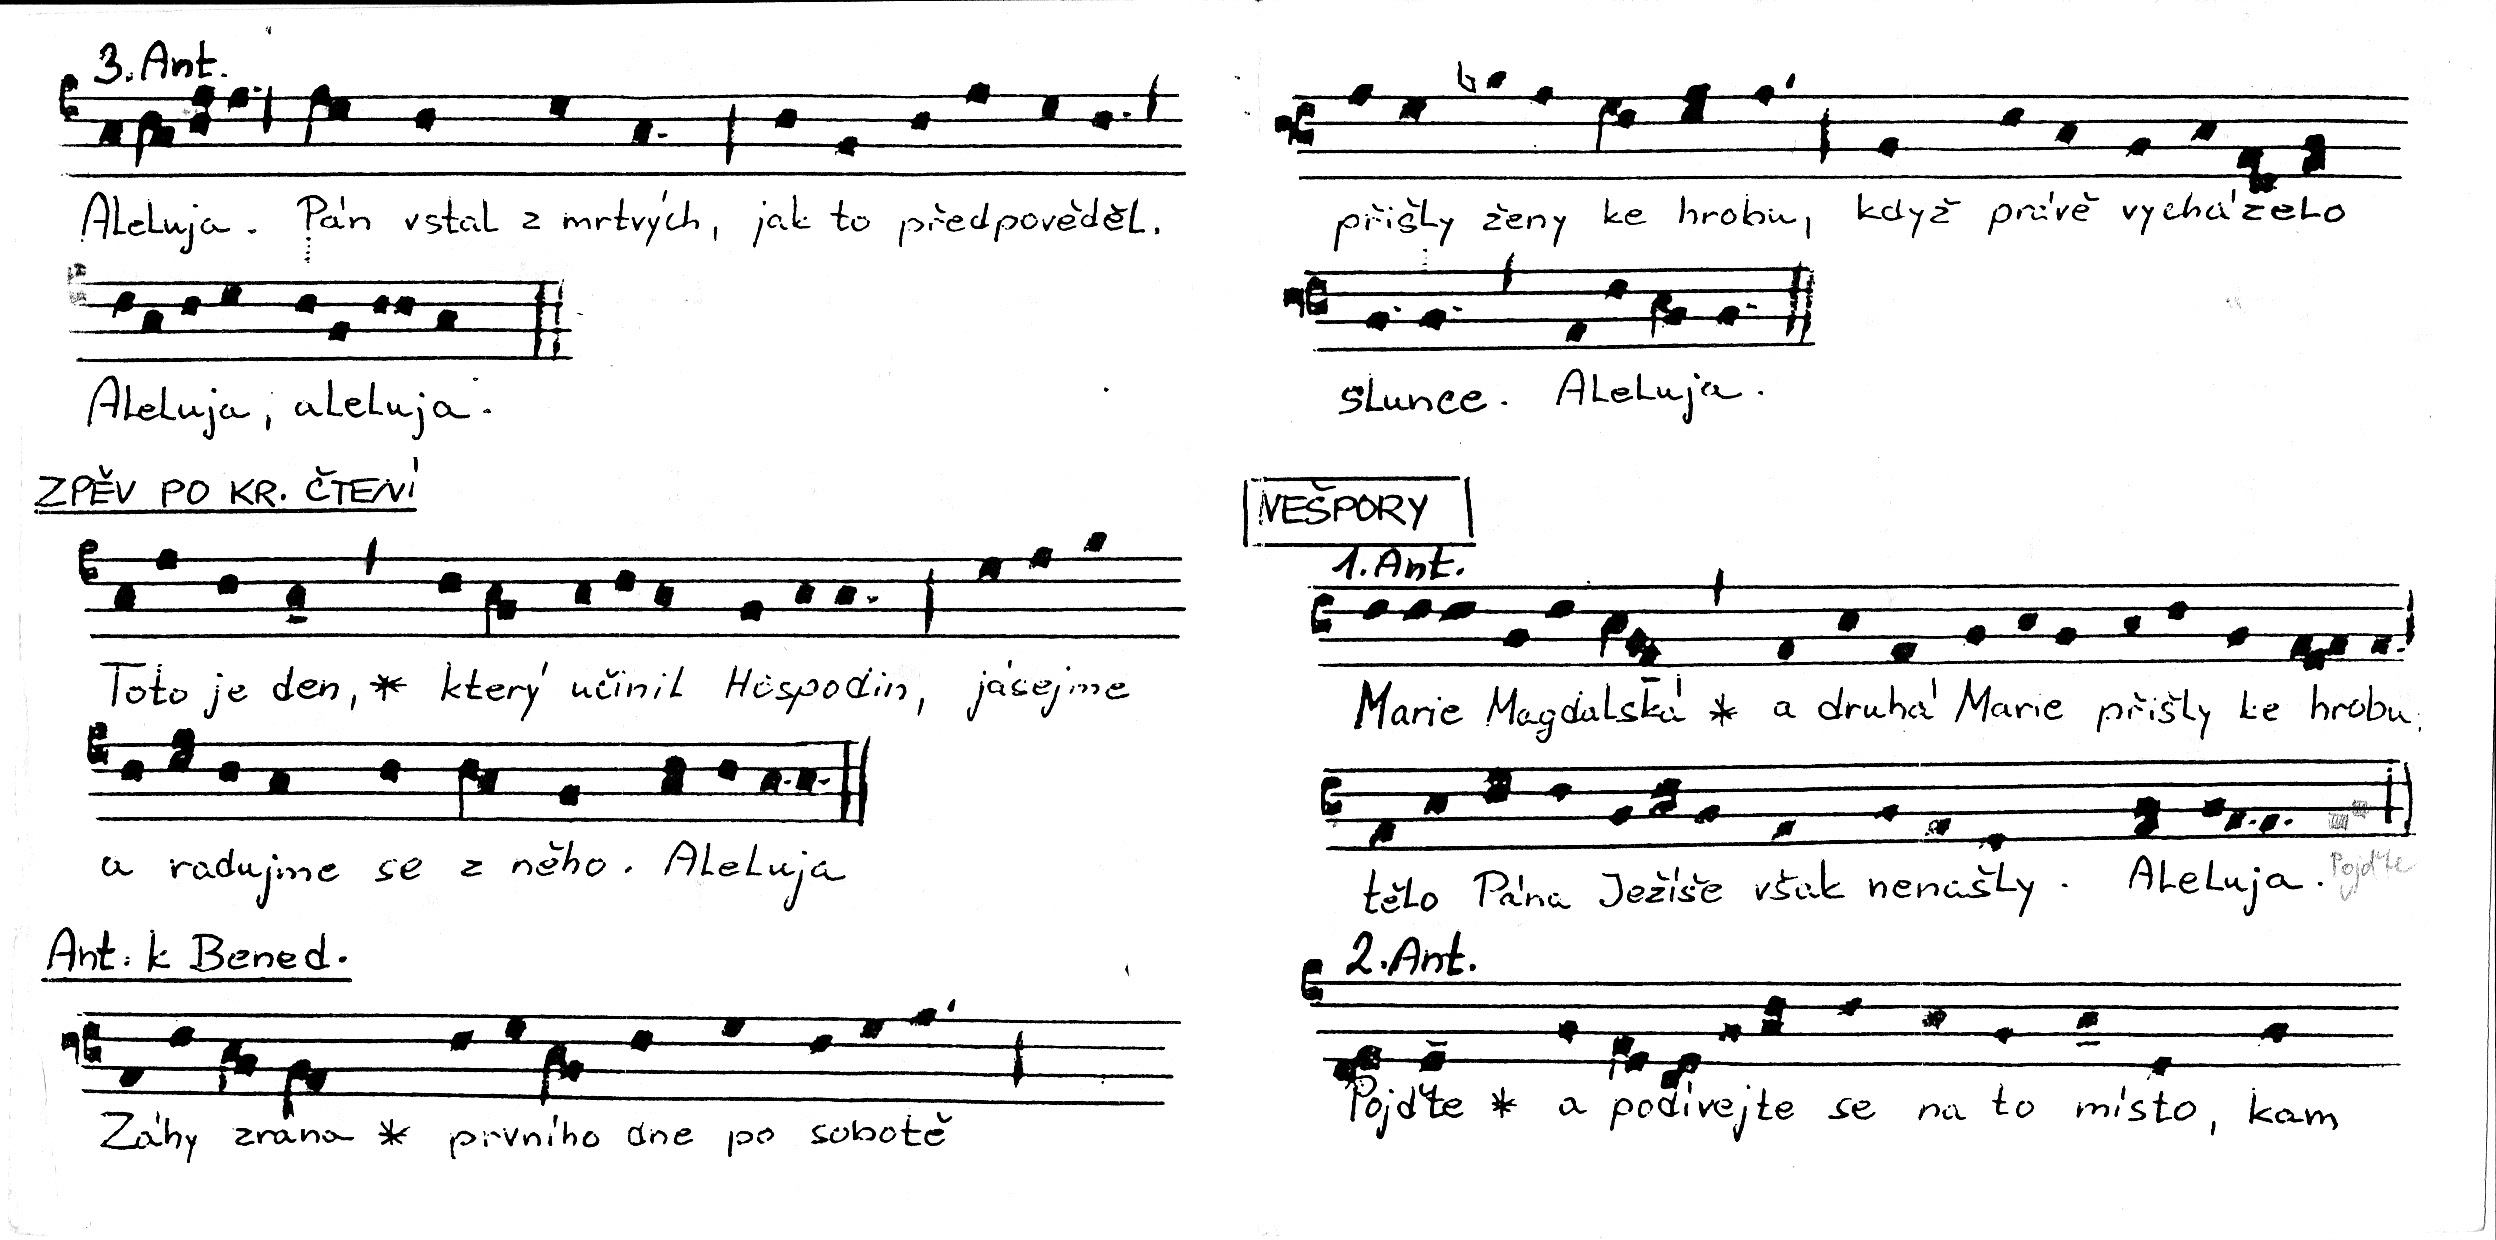 3. Ant.
Aleluja. Pán vstal z mrtvých, jak to předpověděl.
Aleluja, aleluja.
ZPĚV PO KR. ČTENÍ
Toto je den, * který učinil Hospodin, jásejme
a radujme se z něho. Aleluja
Ant. k Bened.
Záhy zrána * prvního dne po sobotě
přišly ženy ke hrobu, když právě vycházelo
slunce. Aleluja.
NEŠPORY
1. Ant.
Marie Magdalská * a druhá Marie přišly ke hrobu,
tělo Pána Ježíše však nenašly. Aleluja. Pojďte
2. Ant.
Pojďte * a podívejte se na to místo, kam